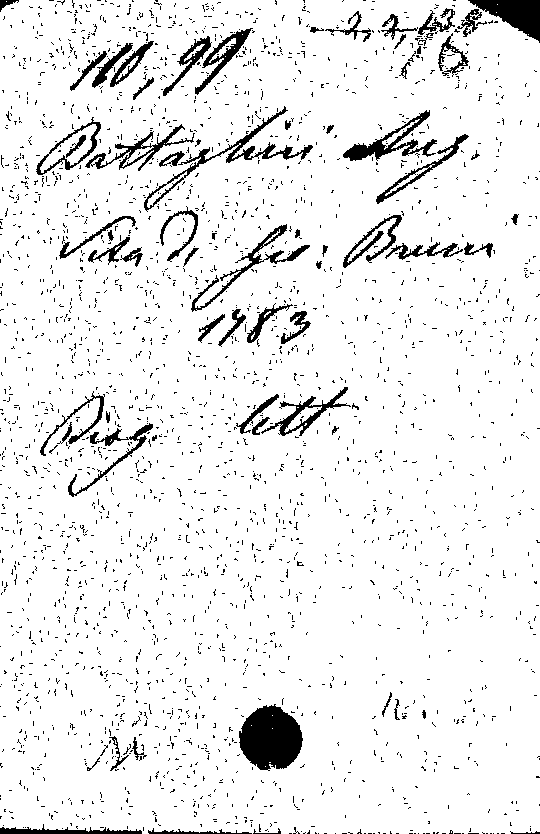 110,99
Battaglini Ang.
Vita di Gio: Bruni
1783
Biog. lett.